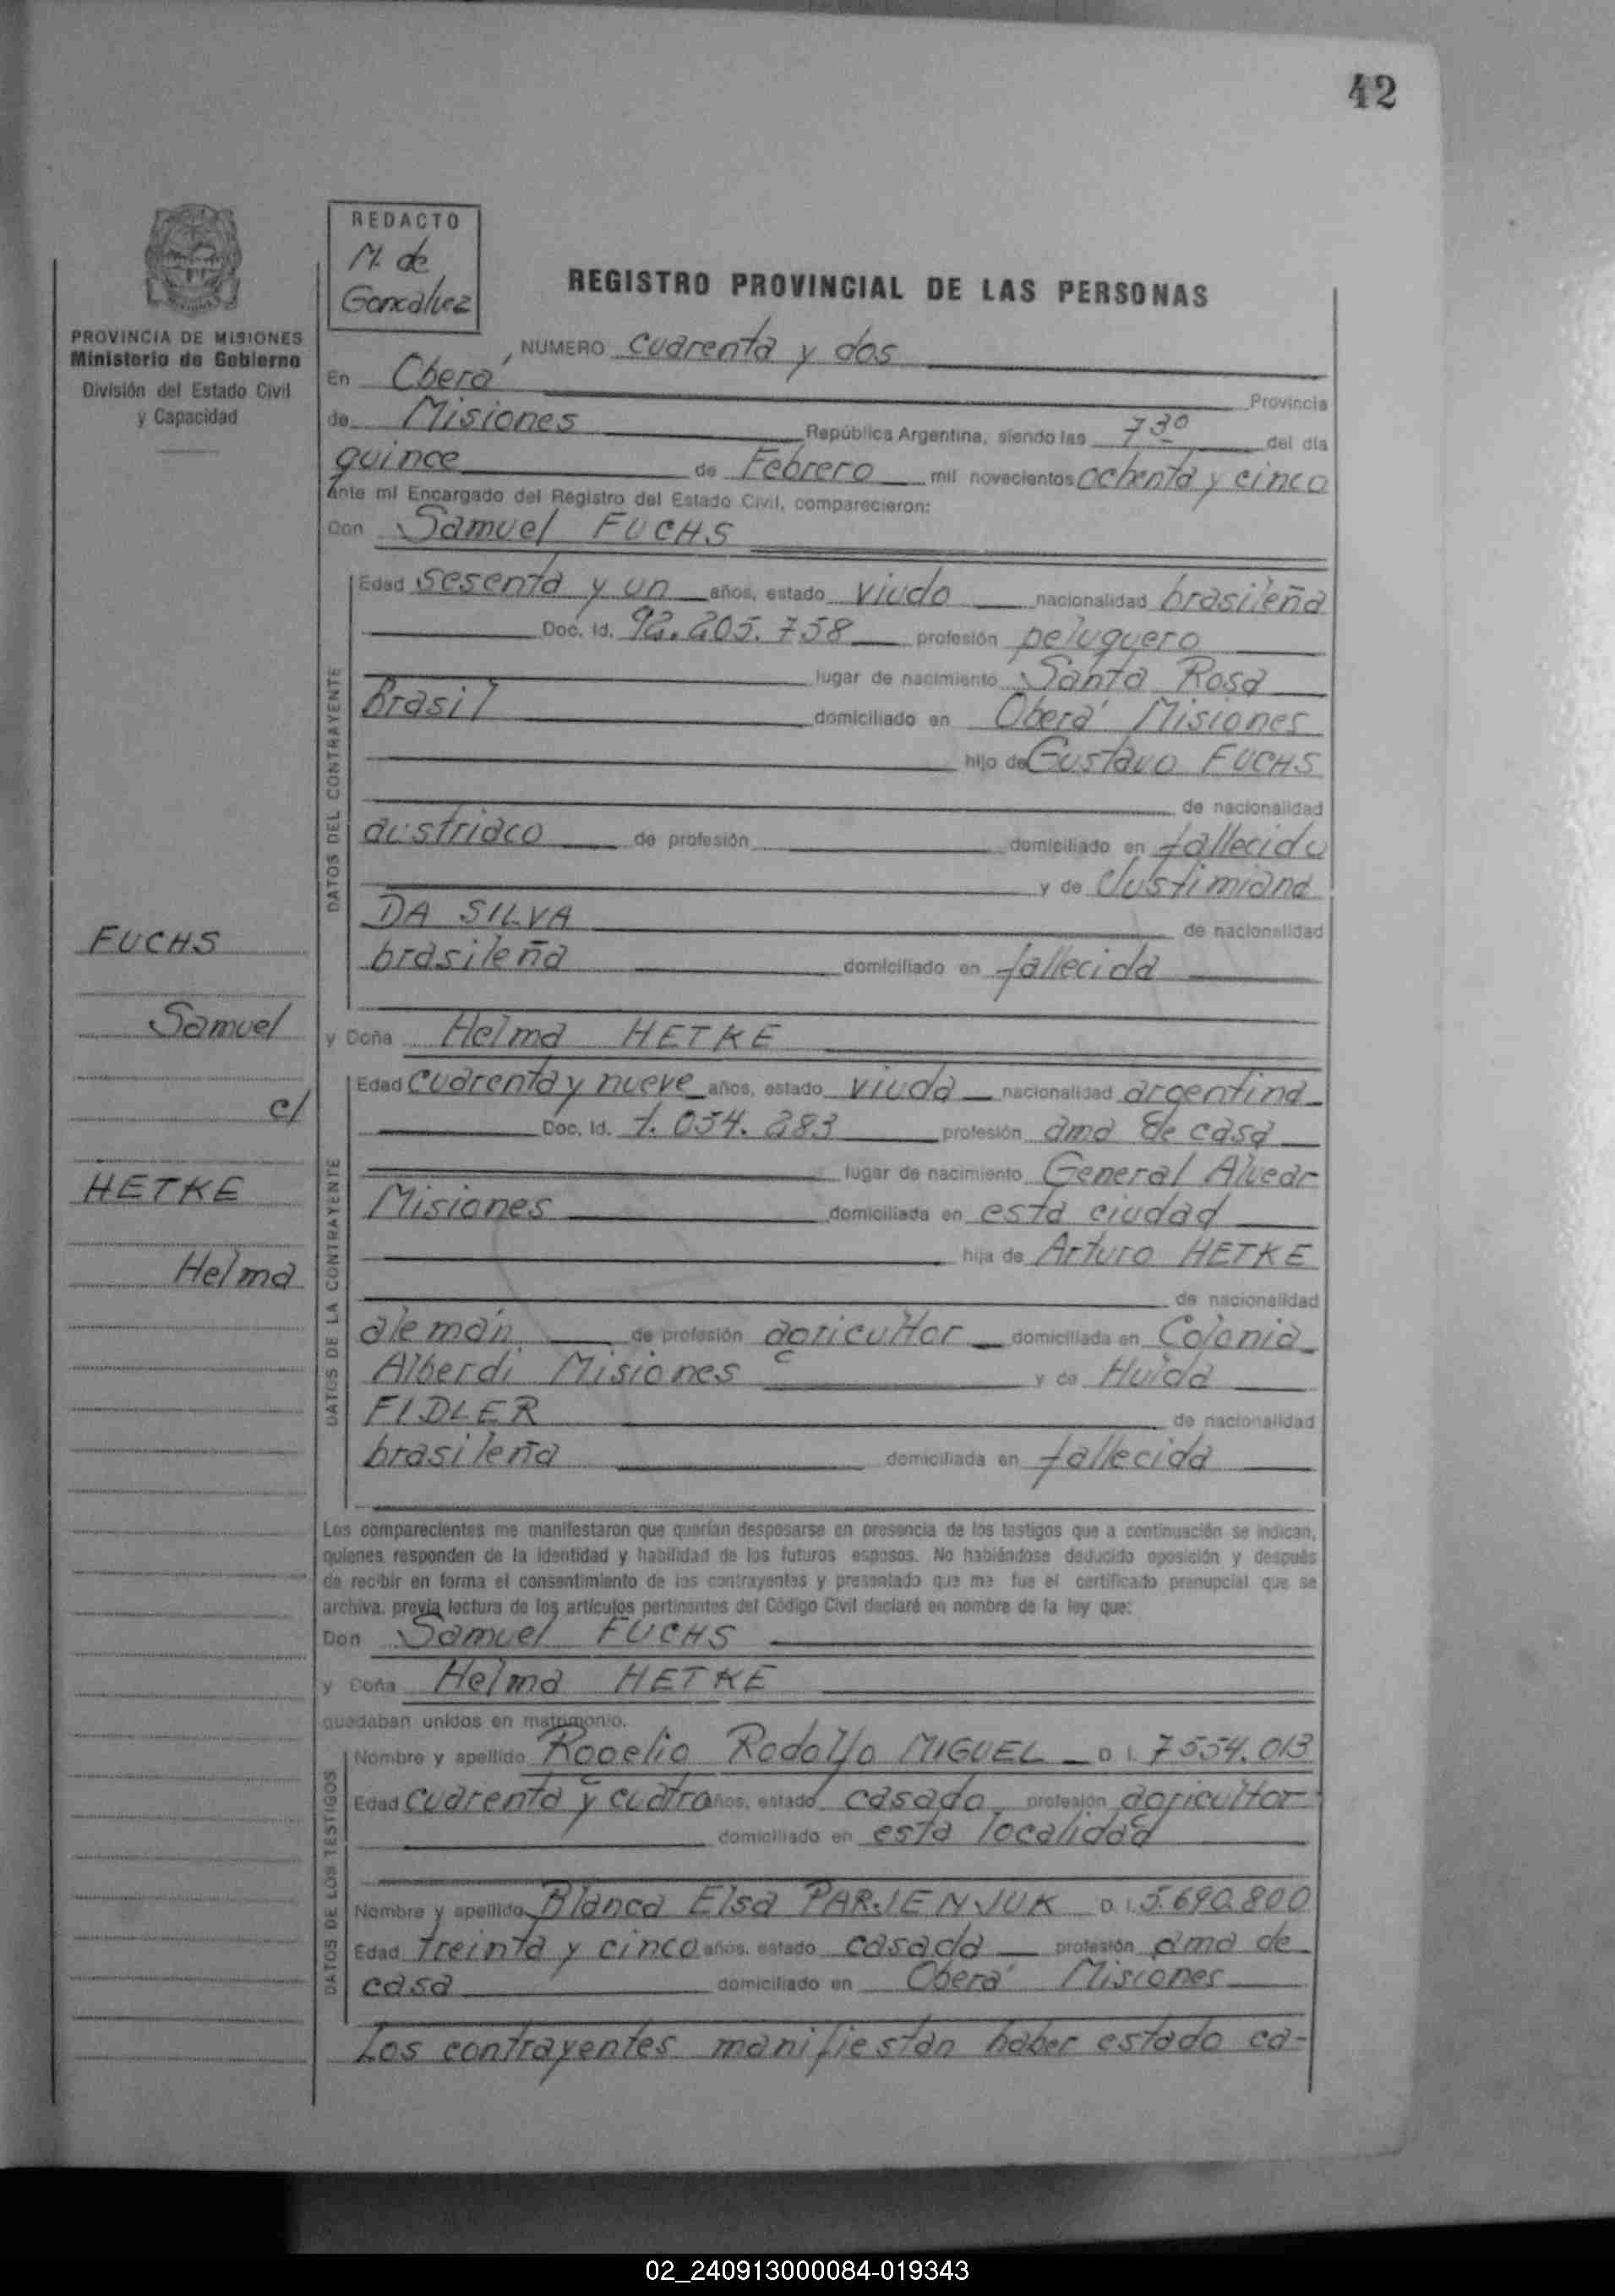 42
REDACTO
M. de
Goncalvez
REGISTRO PROVINCIAL DE LAS PERSONAS
PROVINCIA DE MISIONES
Ministerio de Gobierno
División del Estado Civil
y Capacidad
NUMERO cuarenta y dos
En Oberá Provincia
de Misiones República Argentina, siendo las 7 30 del día
quince de Febrero mil novecientos ochenta y cinco
Ante mi Encargado del Registro del Estado Civil, comparecieron:
Don Samuel FUCHS
DATOS DEL CONTRAYENTE
Edad sesenta y un años, estado viudo nacionalidad brasileña
Doc. Id. 92.205.758 profesión peluquero
lugar de nacimiento Santa Rosa
Brasil domiciliado en Oberá Misiones
hijo de Gustavo FUCHS
de nacionalidad
austriaco de profesión domiciliado en fallecido
y de Justimiana
DA SILVA de nacionalidad
brasileña domiciliado en fallecida
FUCHS
Samuel
c/
HETKE
Helma
y Doña Helma HETKE
DATOS DE LA CONTRAYENTE
Edad cuarenta y nueve años, estado viuda nacionalidad argentina
Doc. Id. 1.054.283 profesión ama de casa
lugar de nacimiento General Alvear
Misiones domiciliada en esta ciudad
hija de Arturo HETKE
de nacionalidad
alemán de profesión agricultor domiciliada en Colonia
Alberdi Misiones y de Hulda
FIDLER de nacionalidad
brasileña domiciliada en fallecida
Los comparecientes me manifestaron que querían desposarse en presencia de los testigos que a continuación se indican,
quienes responden de la identidad y habilidad de los futuros esposos. No habiéndose deducido oposición y después
de recibir en forma el consentimiento de los contrayentes y presentado que me fue el certificado prenupcial que se
archiva, previa lectura de los artículos pertinentes del Código Civil declaré en nombre de la ley que:
Don Samuel FUCHS
y Doña Helma HETKE
quedaban unidos en matrimonio.
DATOS DE LOS TESTIGOS
Nombre y apellido Rogelio Rodolfo MIGUEL D. I. 7554.013
Edad cuarenta y cuatro años, estado casado profesión agricultor
domiciliado en esta localidad
Nombre y apellido Blanca Elsa PARJENJUK D. I. 5.690.800
Edad treinta y cinco años, estado casada profesión ama de
casa domiciliado en Oberá Misiones
Los contrayentes manifiestan haber estado ca-
02_240913000084-019343